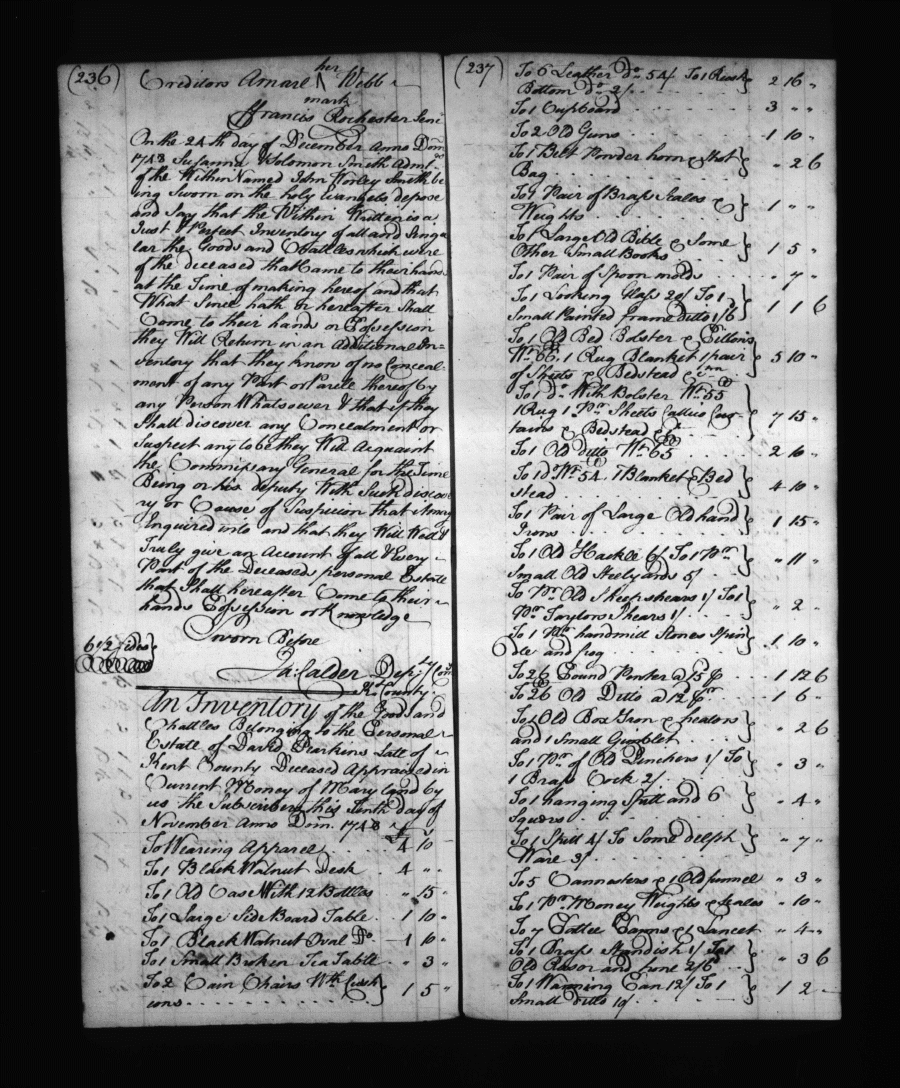 (236)
Creditors Amarl her Webb
mark
Francis Rochester Seni
On the 24th day of December Anno Dom
1748 Susanna & Solomon Smith Adm
of the Within Named John Worley Smith be
ing Sworn on the holy Evangels depose
and Say that the Within Written is a
Just & Perfect Inventory of all and Singu
lar the Goods and Chattles which were
of the deceased that Came to their hands
at the Time of making hereof and that
What Since hath or hereafter Shall
Come to their hands or Possession
they Will Return in an Additional In-
ventory that they know of no Conceal
ment of any Part or Parcle thereof by
any Person Whatsoever & that if they
Shall discover any Concealment or
Suspect any to be they Will Acquaint
the Commissary General for the Time
Being or his deputy With Such discove
ry or Cause of Suspicion that it may
Enquired into and that they Will Well &
Truly give an Account of all & Every
Part of the Deceased personal Estate
that Shall hereafter Come to their
hands Possession or Knowledge
Sworn Before
6 1/2 Sides
Ja: Calder Depty Com
Kt County
An Inventory of the Goods and
Chattles Belonging to the Personal
Estate of David Perkins Late of
Kent County Deceased Appraised in
Current Money of Maryland by
us the Subscribers this Tenth day of
November Anno Dom. 1748
To Wearing Apparel 4 10 -
To 1 Black Walnut Desk 4 " "
To 1 Old Case With 12 Bottles " 15 "
To 1 Large Side Board Table 1 10 "
To 1 Black Walnut Oval Do 1 10 "
To 1 Small Broken Tea Table " 3 "
To 2 Cain Chairs Wth Cush
ions 1 5 "
(237)
To 6 Leather Do 54/ To 1 Rush
Bottom do 2/ 2 16 "
To 1 Cupboard 3 " "
To 2 Old Guns 1 10 "
To 1 Belt Powder horn & Shot
Bag " 2 6
To 1 Pair of Brass Scales &
Weights 1 " "
To 1 Large Old Bible & Some
Other Small Books 1 5 "
To 1 Pair of Spoon molds " 7 "
To 1 Looking Glass 20/ To 1
Small Painted frame ditto 1/6 1 1 6
To 1 Old Bed Bolster & Pillows
Wt 66. 1 Rug Blanket 1 pair
of Sheets & Bedstead 5 10 "
To 1 do With Bolster Wt 55
1 Rug 1 Pr Sheets Callico Cur
tains & Bedstead &c 7 15 "
To 1 Old ditto Wt 65 2 10 "
To 1 do Wt 54. 1 Blanket & Bed
stead 4 10 "
To 1 Pair of Large Old hand
Irons 1 15 "
To 1 Old Hackle 6/ To 1 Pr
Small Old Steelyards 5/ " 11 "
To Pr Old Sheepshears 1/ To 1
Pr Taylors Shears 1/ " 2 "
To 1 Pr handmill Stones Spin
dle and frog 1 10 "
To 26 Pound Pewter @ 15 p 1 12 6
To 26 Old Ditto @ 12 pr 1 6 "
To 1 Old Box Iron & heaters
and 1 Small Gimblet " 2 6
To 1 Pr of Old Pinchers 1/ To
1 Brass Cock 2/ " 3 "
To 1 hanging Spitt and 6
Squers " 4 "
To 1 Spitt 4/ To Some delph
Ware 3/ " 7 "
To 5 Cannesters & 1 Old funnel " 3 "
To 1 Pr Money Weights & Scales " 10 "
To 7 Pattee Panns & 1 Lancet " 4 "
To 1 Brass Standish 1/ To 1
Old Rasor and 2/6 " 3 6
To 1 Warming Pan 12/ To 1
Small ditto 10/ 1 2 "